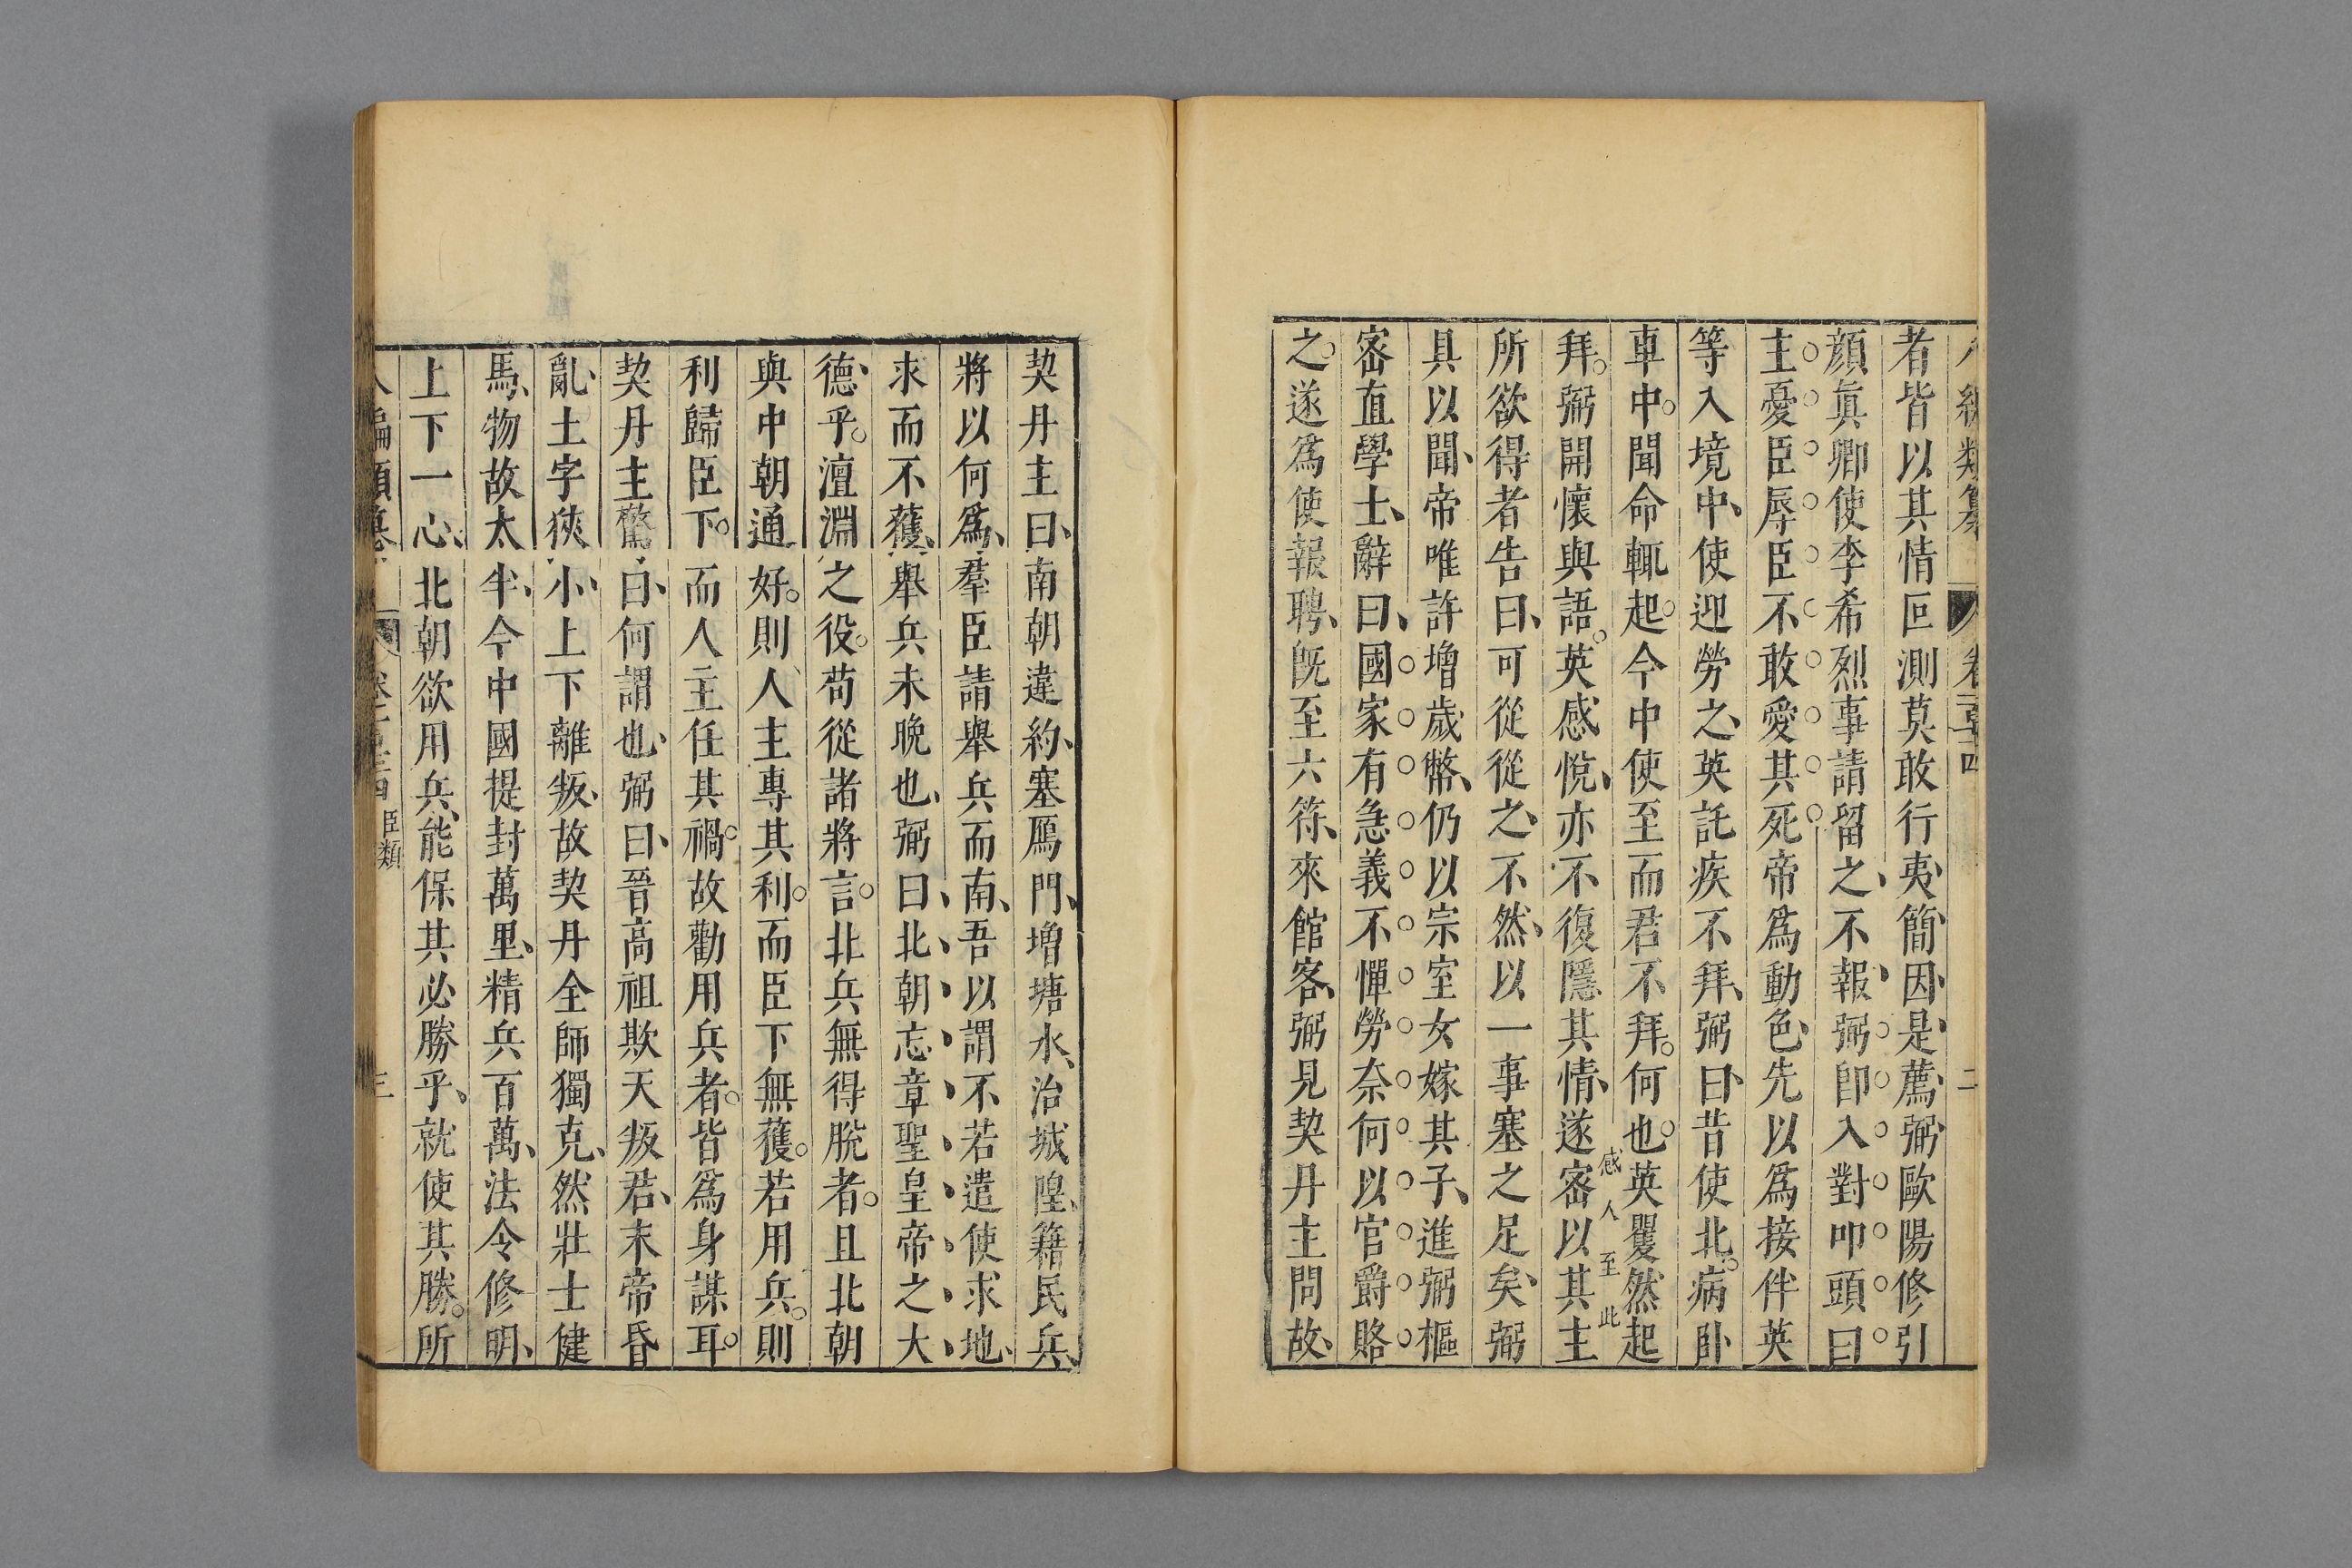 者皆以其情叵測莫敢行夷簡因是薦弼歐陽修引
顔眞卿使李希烈事請留之不報弼卽入對叩頭曰
主憂臣辱臣不敢愛其死帝爲動色先以爲接伴英
等入境中使迎勞之英託疾不拜弼曰昔使北病臥
車中聞命輒起今中使至而君不拜何也英矍然起
感人至此
拜弼開懷與語英感悅亦不復隱其情遂密以其主
所欲得者告曰可從從之不然以一事塞之足矣弼
具以聞帝唯許增歲幣仍以宗室女嫁其子進弼樞
密直學士辭曰國家有急義不憚勞奈何以官爵賂
之遂爲使報聘旣至六符來館客弼見契丹主問故
契丹主曰南朝違約塞鴈門增塘水治城隍籍民兵
將以何爲羣臣請舉兵而南吾以謂不若遣使求地
求而不獲舉兵未晚也弼曰北朝忘章聖皇帝之大
德乎澶淵之役苟從諸將言北兵無得脫者且北朝
與中朝通好則人主專其利而臣下無獲若用兵則
利歸臣下而人主任其禍故勸用兵者皆爲身謀耳
契丹主驚曰何謂也弼曰晉高祖欺天叛君末帝昏
亂土字狹小上下離叛故契丹全師獨克然壯士健
馬物故太半今中國提封萬里精兵百萬法令修明
上下一心北朝欲用兵能保其必勝乎就使其勝所
臣類
三